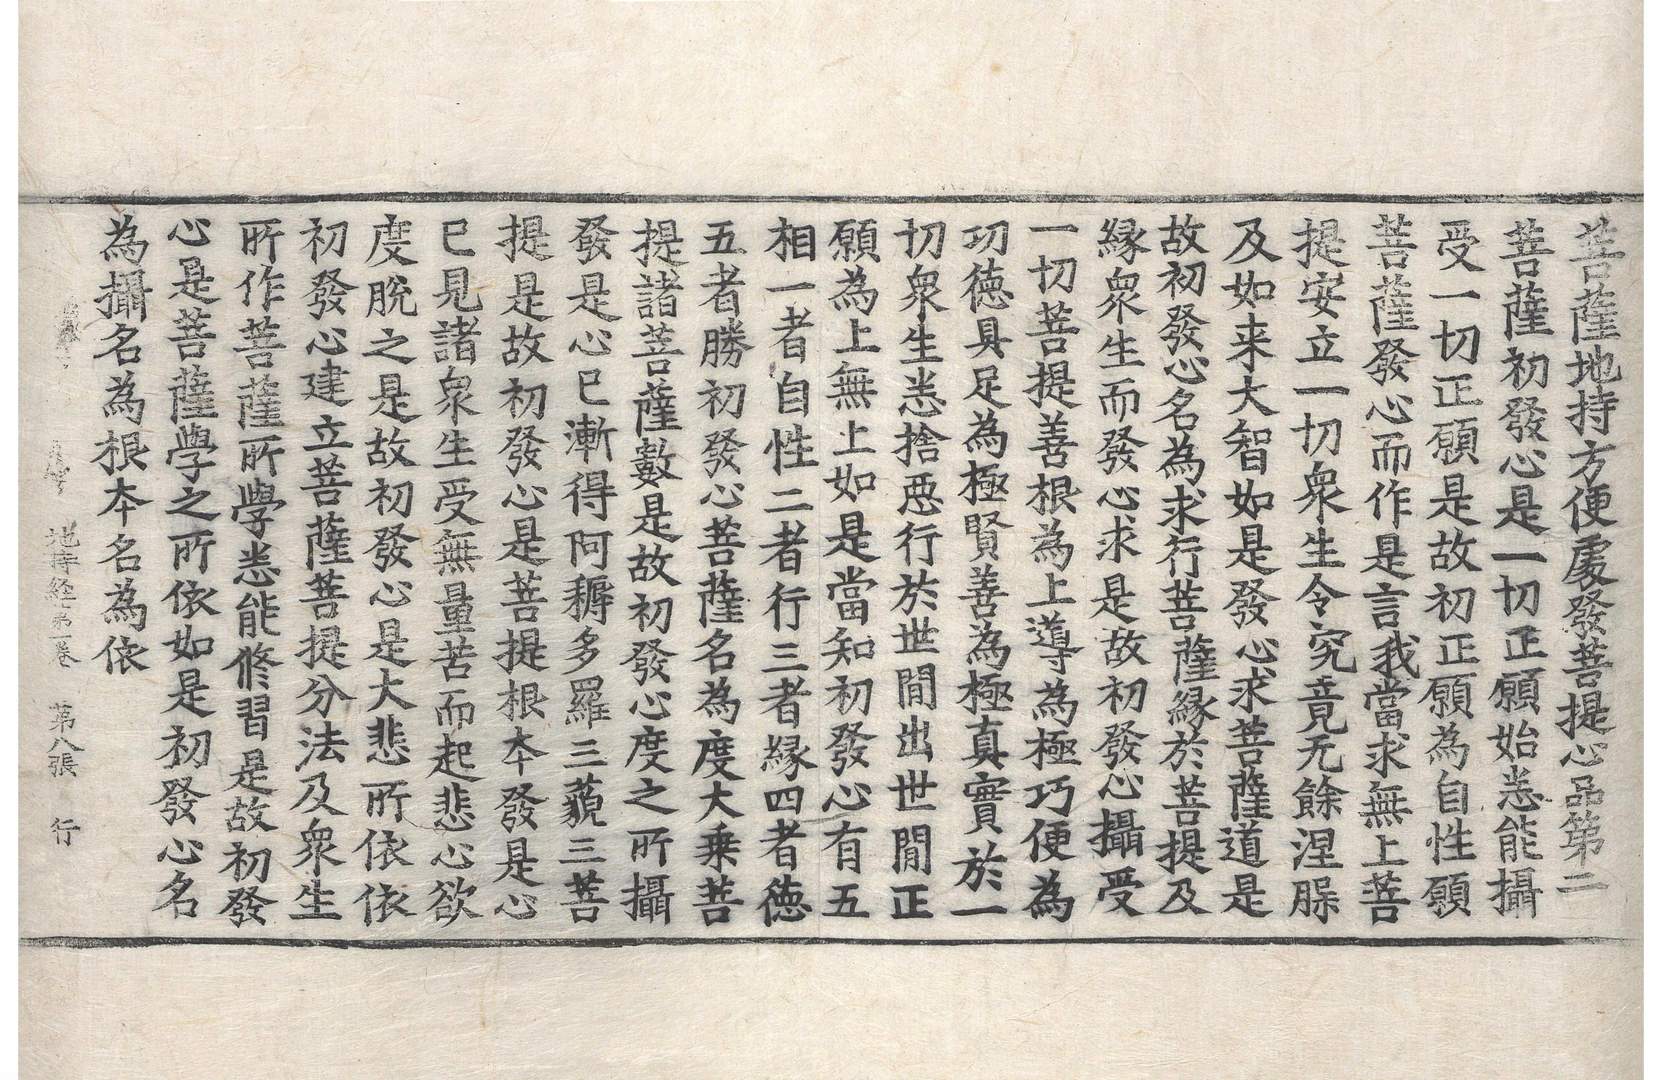 菩薩地持方便處發菩提心品第二
菩薩初發心是一切正願始悉能攝
受一切正願是故初正願為自性願
菩薩發心而作是言我當求無上菩
提安立一切衆生令究竟无餘涅槃
及如来大智如是發心求菩薩道是
故初發心名為求行菩薩緣於菩提及
緣衆生而發心求是故初發心攝受
一切菩提善根為上導為極巧便為
功德具足為極賢善為極真實於一
切衆生悉捨惡行於世間出世間正
願為上無上如是當知初發心有五
相一者自性二者行三者緣四者德
五者勝初發心菩薩名為度大乗菩
提諸菩薩數是故初發心度之所攝
發是心已漸得阿耨多羅三藐三菩
提是故初發心是菩提根本發是心
已見諸衆生受無量苦而起悲心欲
度脫之是故初發心是大悲所依依
初發心建立菩薩菩提分法及衆生
所作菩薩所學悉能修習是故初發
心是菩薩學之所依如是初發心名
為攝名為根本名為依
地持経第一卷 第八張 行